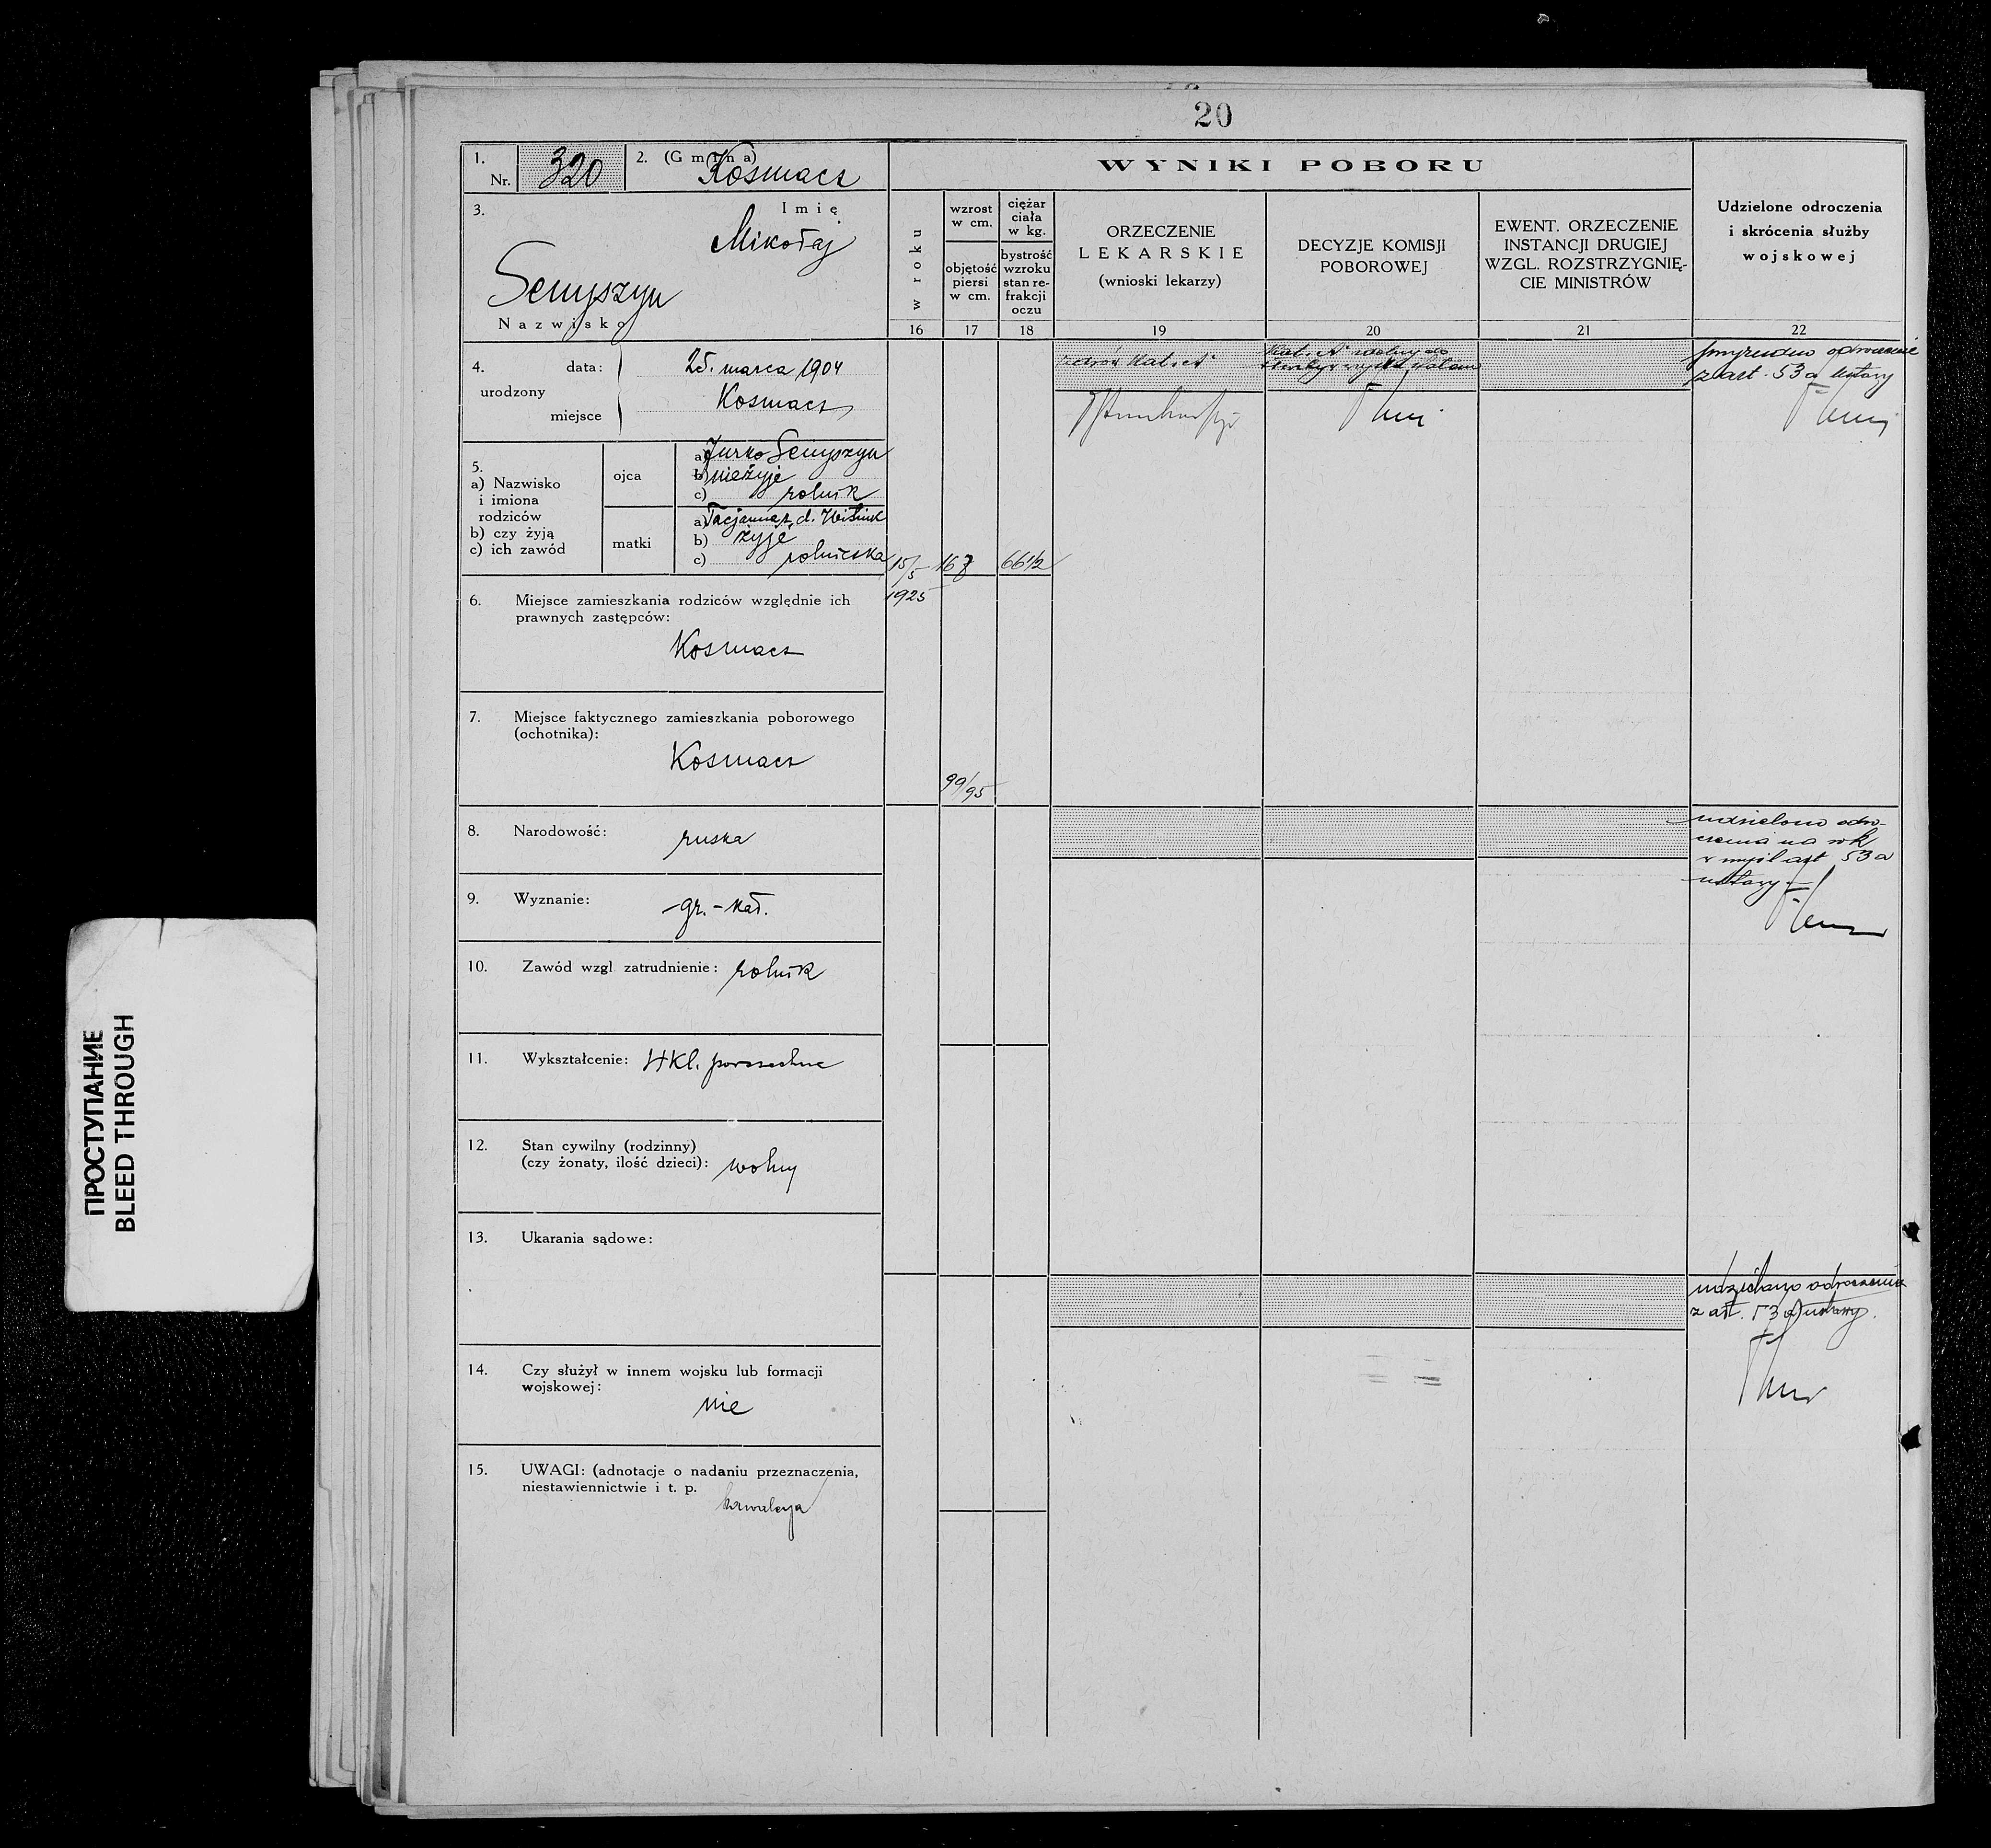 20
1.
Nr. 320
2. (Gmina) Kosmacz
3.
Imię
Mikołaj
Semyszyn
Nazwisko
4.
urodzony
data: 25. marca 1904
miejsce Kosmacz
5.
a) Nazwisko
i imiona
rodziców
b) czy żyją
c) ich zawód
ojca
a) Jurko Semyszyn
b) nieżyje
c) rolnik
matki
a) Tacjanna z d.
b) żyje
c) rolniczka
6. Miejsce zamieszkania rodziców względnie ich
prawnych zastępców:
Kosmacz
7. Miejsce faktycznego zamieszkania poborowego
(ochotnika):
Kosmacz
8. Narodowość: ruska
9. Wyznanie: gr.-kat.
10. Zawód wzgl. zatrudnienie: rolnik
11. Wykształcenie: 4 Kl. powszechne
12. Stan cywilny (rodzinny)
(czy żonaty, ilość dzieci): wolny
13. Ukarania sądowe:
14. Czy służył w innem wojsku lub formacji
wojskowej:
nie
15. UWAGI: (adnotacje o nadaniu przeznaczenia,
niestawiennictwie i t. p.
kawalerja
WYNIKI POBORU
w roku
16
15/5
1925
wzrost
w cm.
objętość
piersi
w cm.
17
99/95
ciężar
ciała
w kg.
bystrość
wzroku
stan re-
frakcji
oczu
18
66 1/2
ORZECZENIE
LEKARSKIE
(wnioski lekarzy)
19
zdrów Kat. A
DECYZJE KOMISJI
POBOROWEJ
20
Kat. "A" zdolny do
EWENT. ORZECZENIE
INSTANCJI DRUGIEJ
WZGL. ROZSTRZYGNIĘ-
CIE MINISTRÓW
21
Udzielone odroczenia
i skrócenia służby
wojskowej
22
odroczenie
z art. 53 a ustawy
udzielono odro-
czenia na rok
w myśl art 53 a
ustawy
udzielono odroczenia
z art. 53 a) ustawy.
ПРОСТУПАНИЕ
BLEED THROUGH